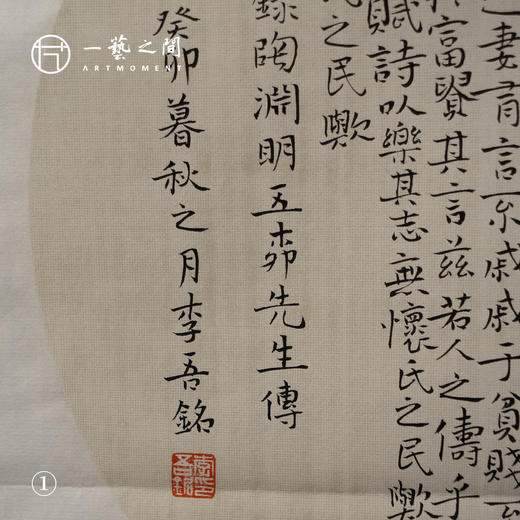 一藝之間
ARTMOMENT
之妻有言不戚戚于貧賤
富貴其言茲若人之儔乎
賦詩以樂其志無懷氏之民歟
氏之民歟
錄陶淵明五柳先生傳
癸卯暮秋之月李吾銘
李印吾銘
①